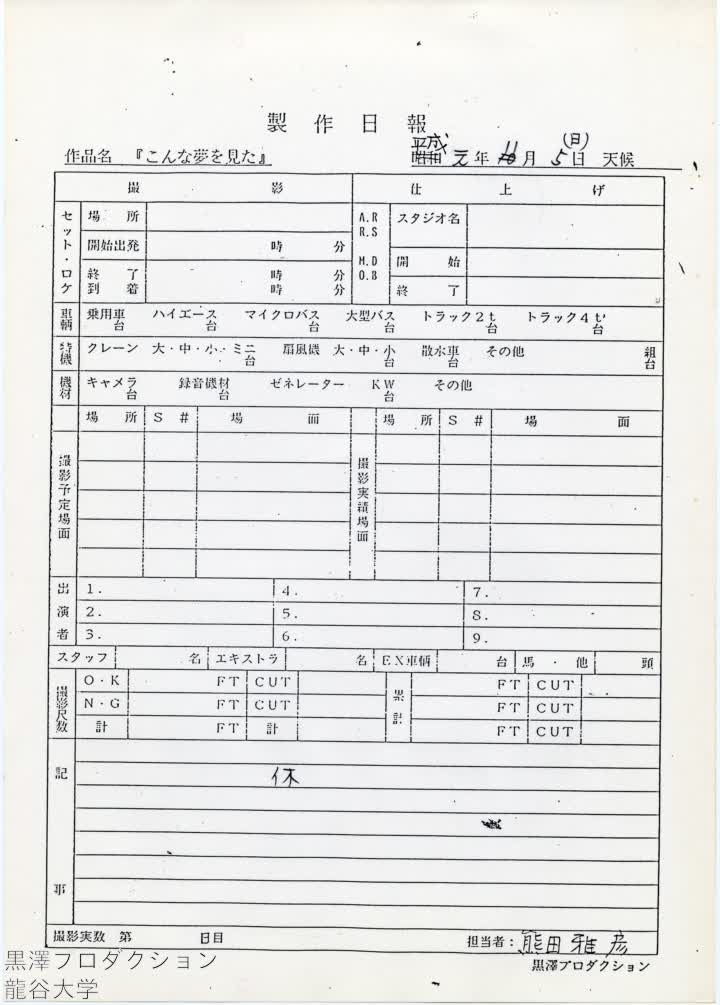 製作日報
作品名 『こんな夢を見た』 平成 昭和 元年 11月 5日 (日) 天候
撮影 仕上げ
セット・ロケ 場所 A.R R.S スタジオ名
開始出発 時 分 M.D O.B 開始
終了 到着 時 分 時 分 終了
車輌 乗用車 台 ハイエース 台 マイクロバス 台 大型バス 台 トラック2t 台 トラック4t 台
特機 クレーン 大・中・小・ミニ 台 扇風機 大・中・小 台 散水車 台 その他 組 台
機材 キャメラ 台 録音機材 台 ゼネレーター KW 台 その他
撮影予定場面 場所 S# 場面 撮影実績場面 場所 S# 場面
出演者 1. 4. 7.
2. 5. 8.
3. 6. 9.
スタッフ 名 エキストラ 名 EX車輌 台 馬・他 頭
撮影尺数 O・K FT CUT 累計 FT CUT
N・G FT CUT FT CUT
計 FT 計 FT CUT
記事
休
撮影実数 第 日目 担当者: 熊田雅彦
黒澤プロダクション
黒澤プロダクション
龍谷大学